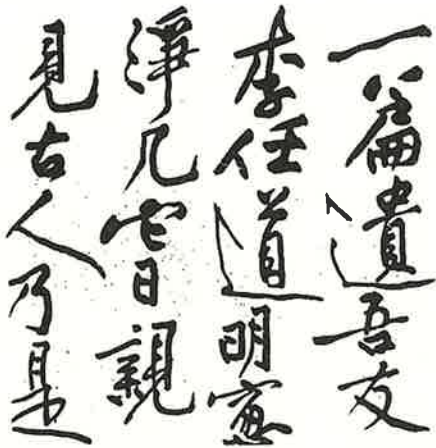 一篇遺吾友
李任道明窓
淨几它日親
見古人乃是